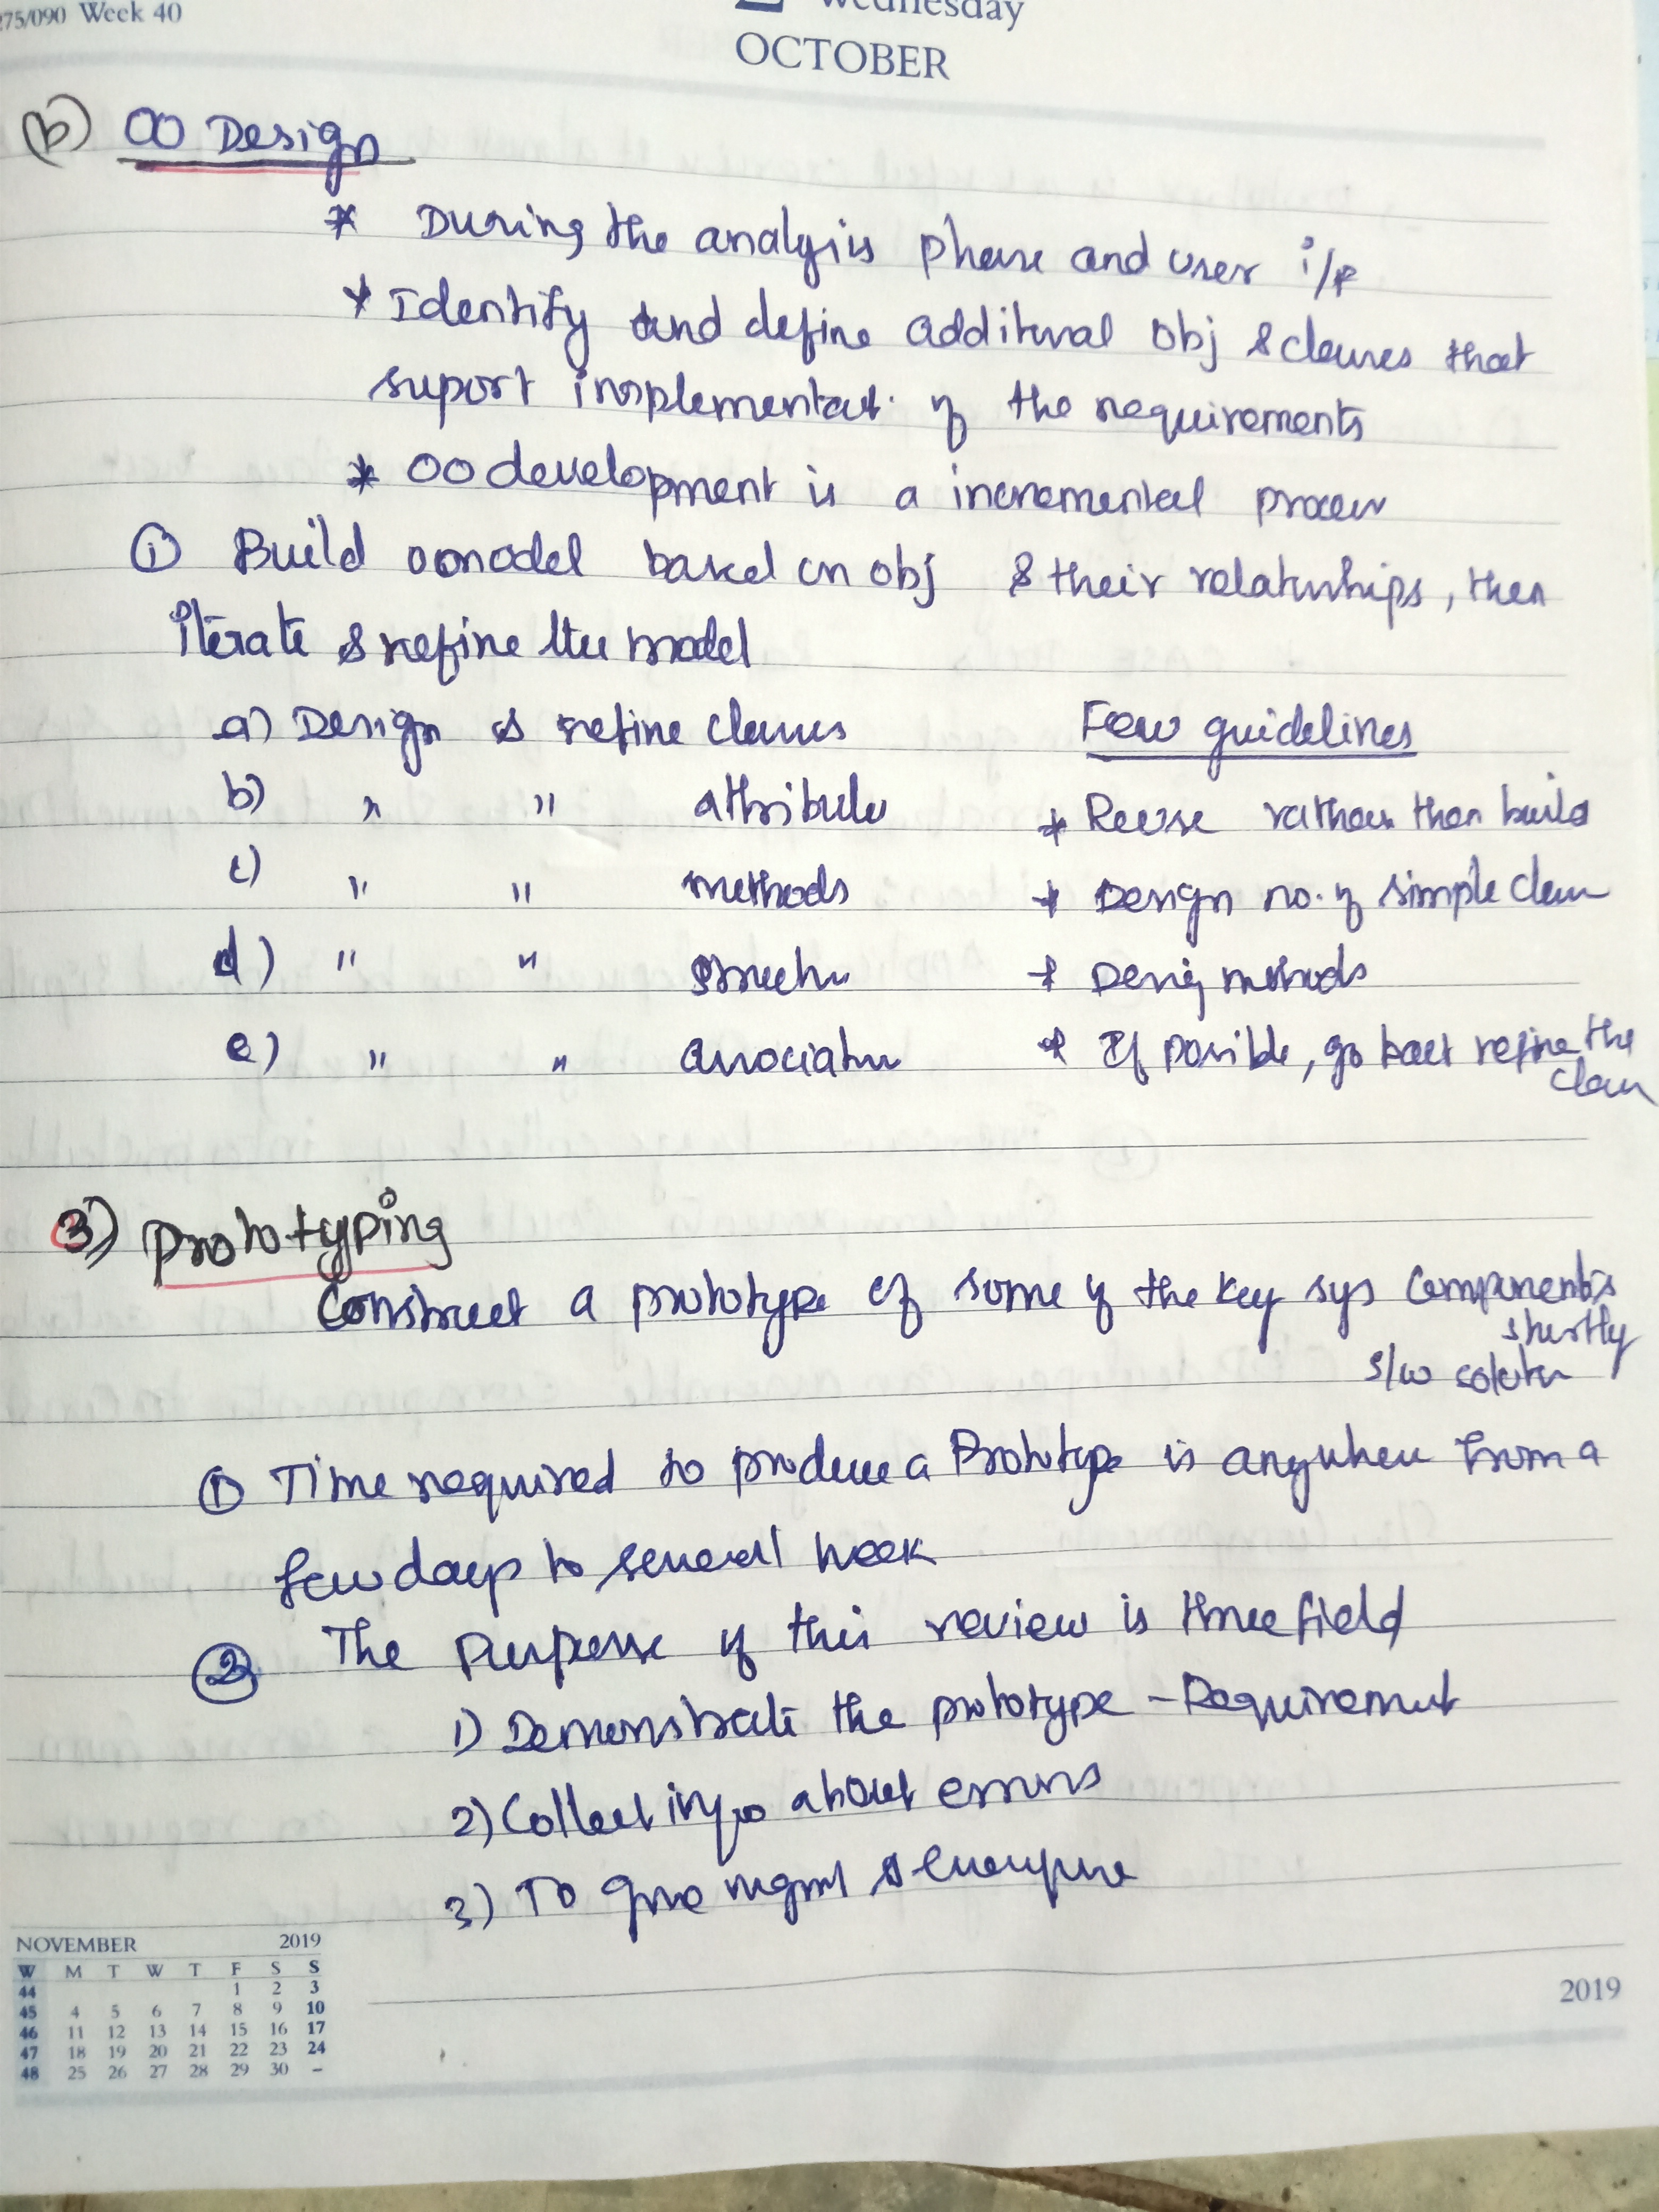 275/090 Week 40
2 Wednesday
OCTOBER
(b) OO Design
* During the analysis phase and user i/f
* Identify and define additional obj & classes that
suport implementat. of the requirements
* OO development is a incremental process
① Build oomodel based on obj & their relationships, then
iterate & refine the model
a) Design & refine classes
b) " " attributes
c) " " methods
d) " " structure
e) " " association
Few guidelines
* Reuse rather than build
* Design no. of simple class
* Design methods
* If possible, go back refine the
class
3) Prototyping
Construct a prototype of some of the key sys components
shortly
s/w solution
① Time required to produce a Prototype is anywhere from a
few days to several week
② The Purpose of this review is three field
1) Demonstrate the prototype - Requirement
2) Collect info about errors
3) To give mgmt & everyone
NOVEMBER 2019
W M T W T F S S
44 1 2 3
45 4 5 6 7 8 9 10
46 11 12 13 14 15 16 17
47 18 19 20 21 22 23 24
48 25 26 27 28 29 30 -
2019